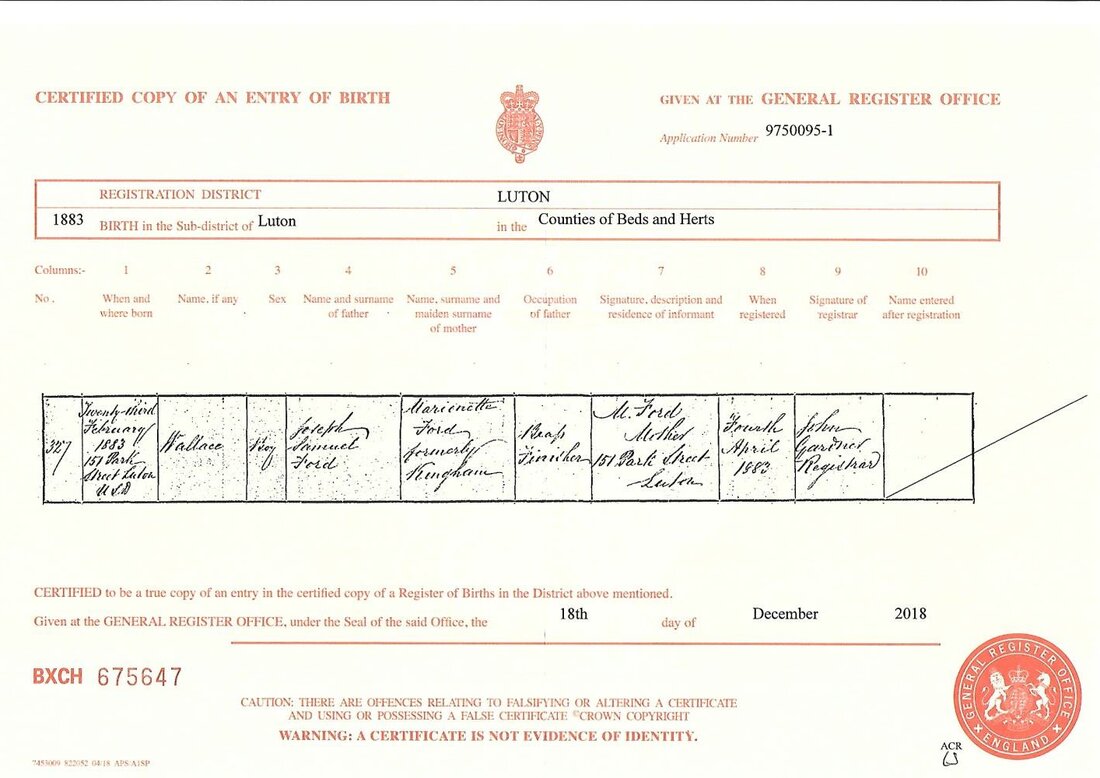 CERTIFIED COPY OF AN ENTRY OF BIRTH
GIVEN AT THE GENERAL REGISTER OFFICE
Application Number 9750095-1
REGISTRATION DISTRICT LUTON
1883 BIRTH in the Sub-district of Luton in the Counties of Beds and Herts
Columns:- 1 2 3 4 5 6 7 8 9 10
No. When and where born Name, if any Sex Name and surname of father Name, surname and maiden surname of mother Occupation of father Signature, description and residence of informant When registered Signature of registrar Name entered after registration
327
Twenty-third
February
1883
151 Park
Street Luton
U.S.D
Wallace
Boy
Joseph
Samuel
Ford
Marienette
Ford
formerly
Kingham
Brass
Finisher
M. Ford
Mother
151 Park Street
Luton
Fourth
April
1883
John
Gardner
Registrar
CERTIFIED to be a true copy of an entry in the certified copy of a Register of Births in the District above mentioned.
Given at the GENERAL REGISTER OFFICE, under the Seal of the said Office, the 18th day of December 2018
BXCH 675647
CAUTION: THERE ARE OFFENCES RELATING TO FALSIFYING OR ALTERING A CERTIFICATE
AND USING OR POSSESSING A FALSE CERTIFICATE ©CROWN COPYRIGHT
WARNING: A CERTIFICATE IS NOT EVIDENCE OF IDENTITY.
GENERAL REGISTER OFFICE
ENGLAND
ACR
7453009 822052 04/18 APS/A1SP